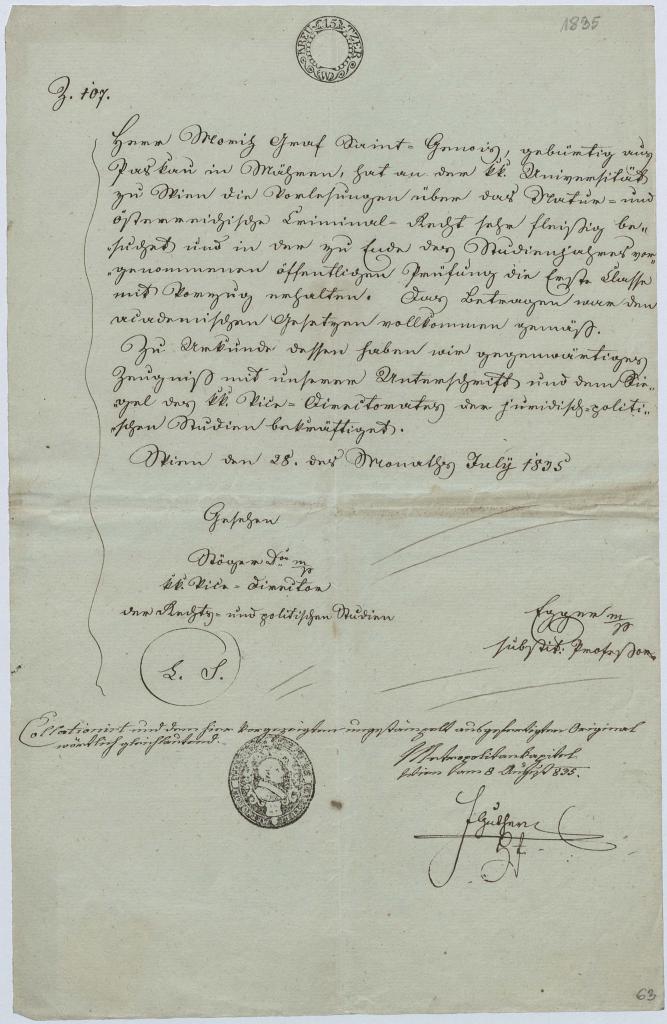 1835
15 KREUTZER
W
Z. 107.
Herr Moritz Graf Saint-Genois, gebürtig aus
Paskau in Mähren, hat an der kk. Universität
zu Wien die Vorlesungen über das Natur- und
österreichische Criminal-Recht sehr fleißig be-
suchet und in der zu Ende des Studienjahres vor-
genommenen öffentlichen Prüfung die Erste Classe
mit Vorzug erhalten. Das Betragen war den
academischen Gesetzen vollkommen gemäß.
Zu Urkunde dessen haben wir gegenwärtiges
Zeugniß mit unserer Unterschrift und dem Sie-
gel des kk. Vice-Directorates der juridisch-politi-
schen Studien bekräftiget.
Wien den 28. des Monaths July 1835
Gesehen
Stöger Dor m/p
kk. Vice-Director
der Rechts- und politischen Studien
Egger m/p
substit: Professor
L. S.
Collationirt und dem hier vorgezeigten ungestämpelt ausgefertigten Original
wörtlich gleichlautend.
Metropolitankapitel
Wien am 8 August 835.
63